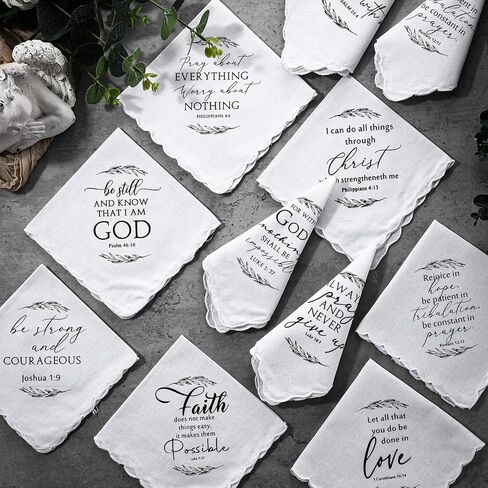 Pray about
EVERYTHING
Worry about
NOTHING
PHILIPPIANS 4:6
with
be constant in
prayer
Romans 12:12
I can do all things
through
Christ
which strengtheneth me
Philippians 4:13
be still
AND KNOW
THAT I AM
GOD
Psalm 46:10
FOR WITH
GOD
nothing
SHALL BE
impossible
LUKE 1:37
ALWAYS
pray
AND
NEVER
give up
Luke 18:1
Rejoice in
hope,
be patient in
tribulation,
be constant in
prayer.
Romans 12:12
be strong
and
COURAGEOUS
Joshua 1:9
Faith
does not make
things easy,
it makes them
Possible
Luke 1:37
Let all that
you do be
done in
love
1 Corinthians 16:14